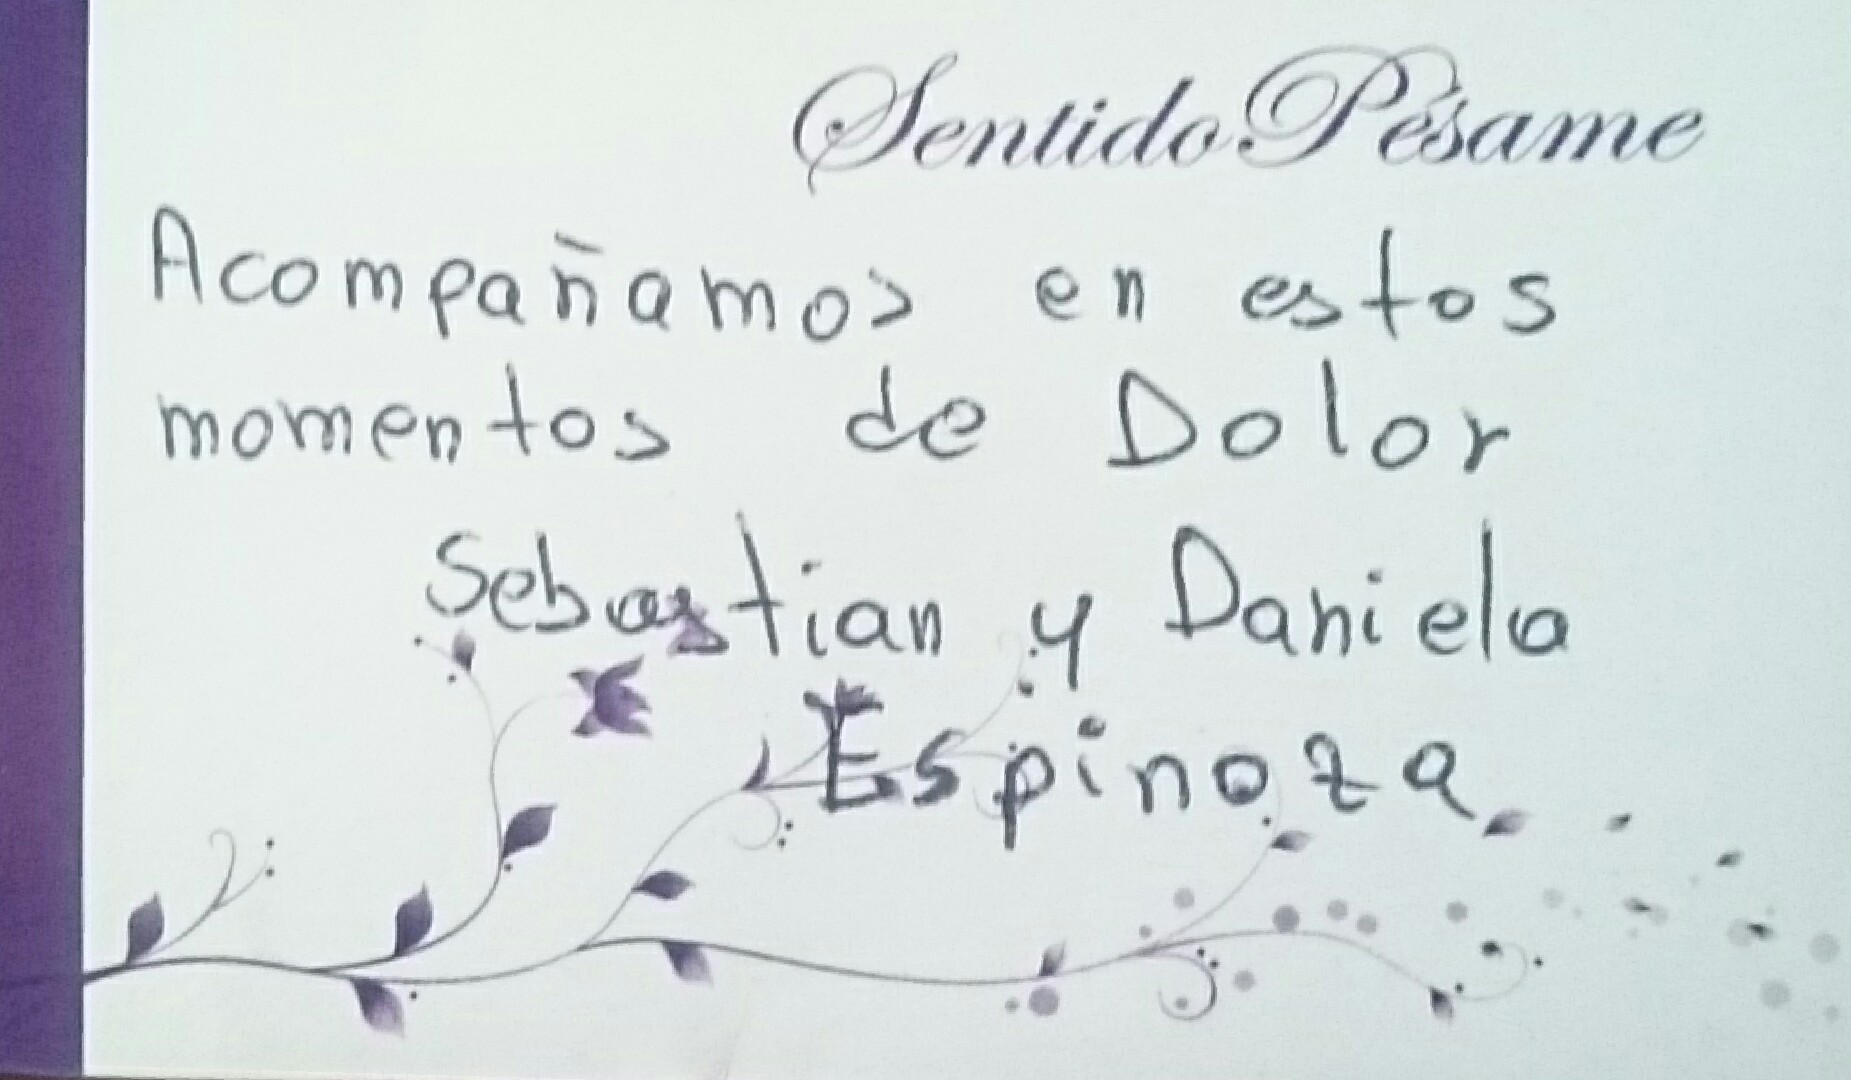 Sentido Pésame
Acompañamos en estos
momentos de Dolor
Sebastian y Daniela
Espinoza